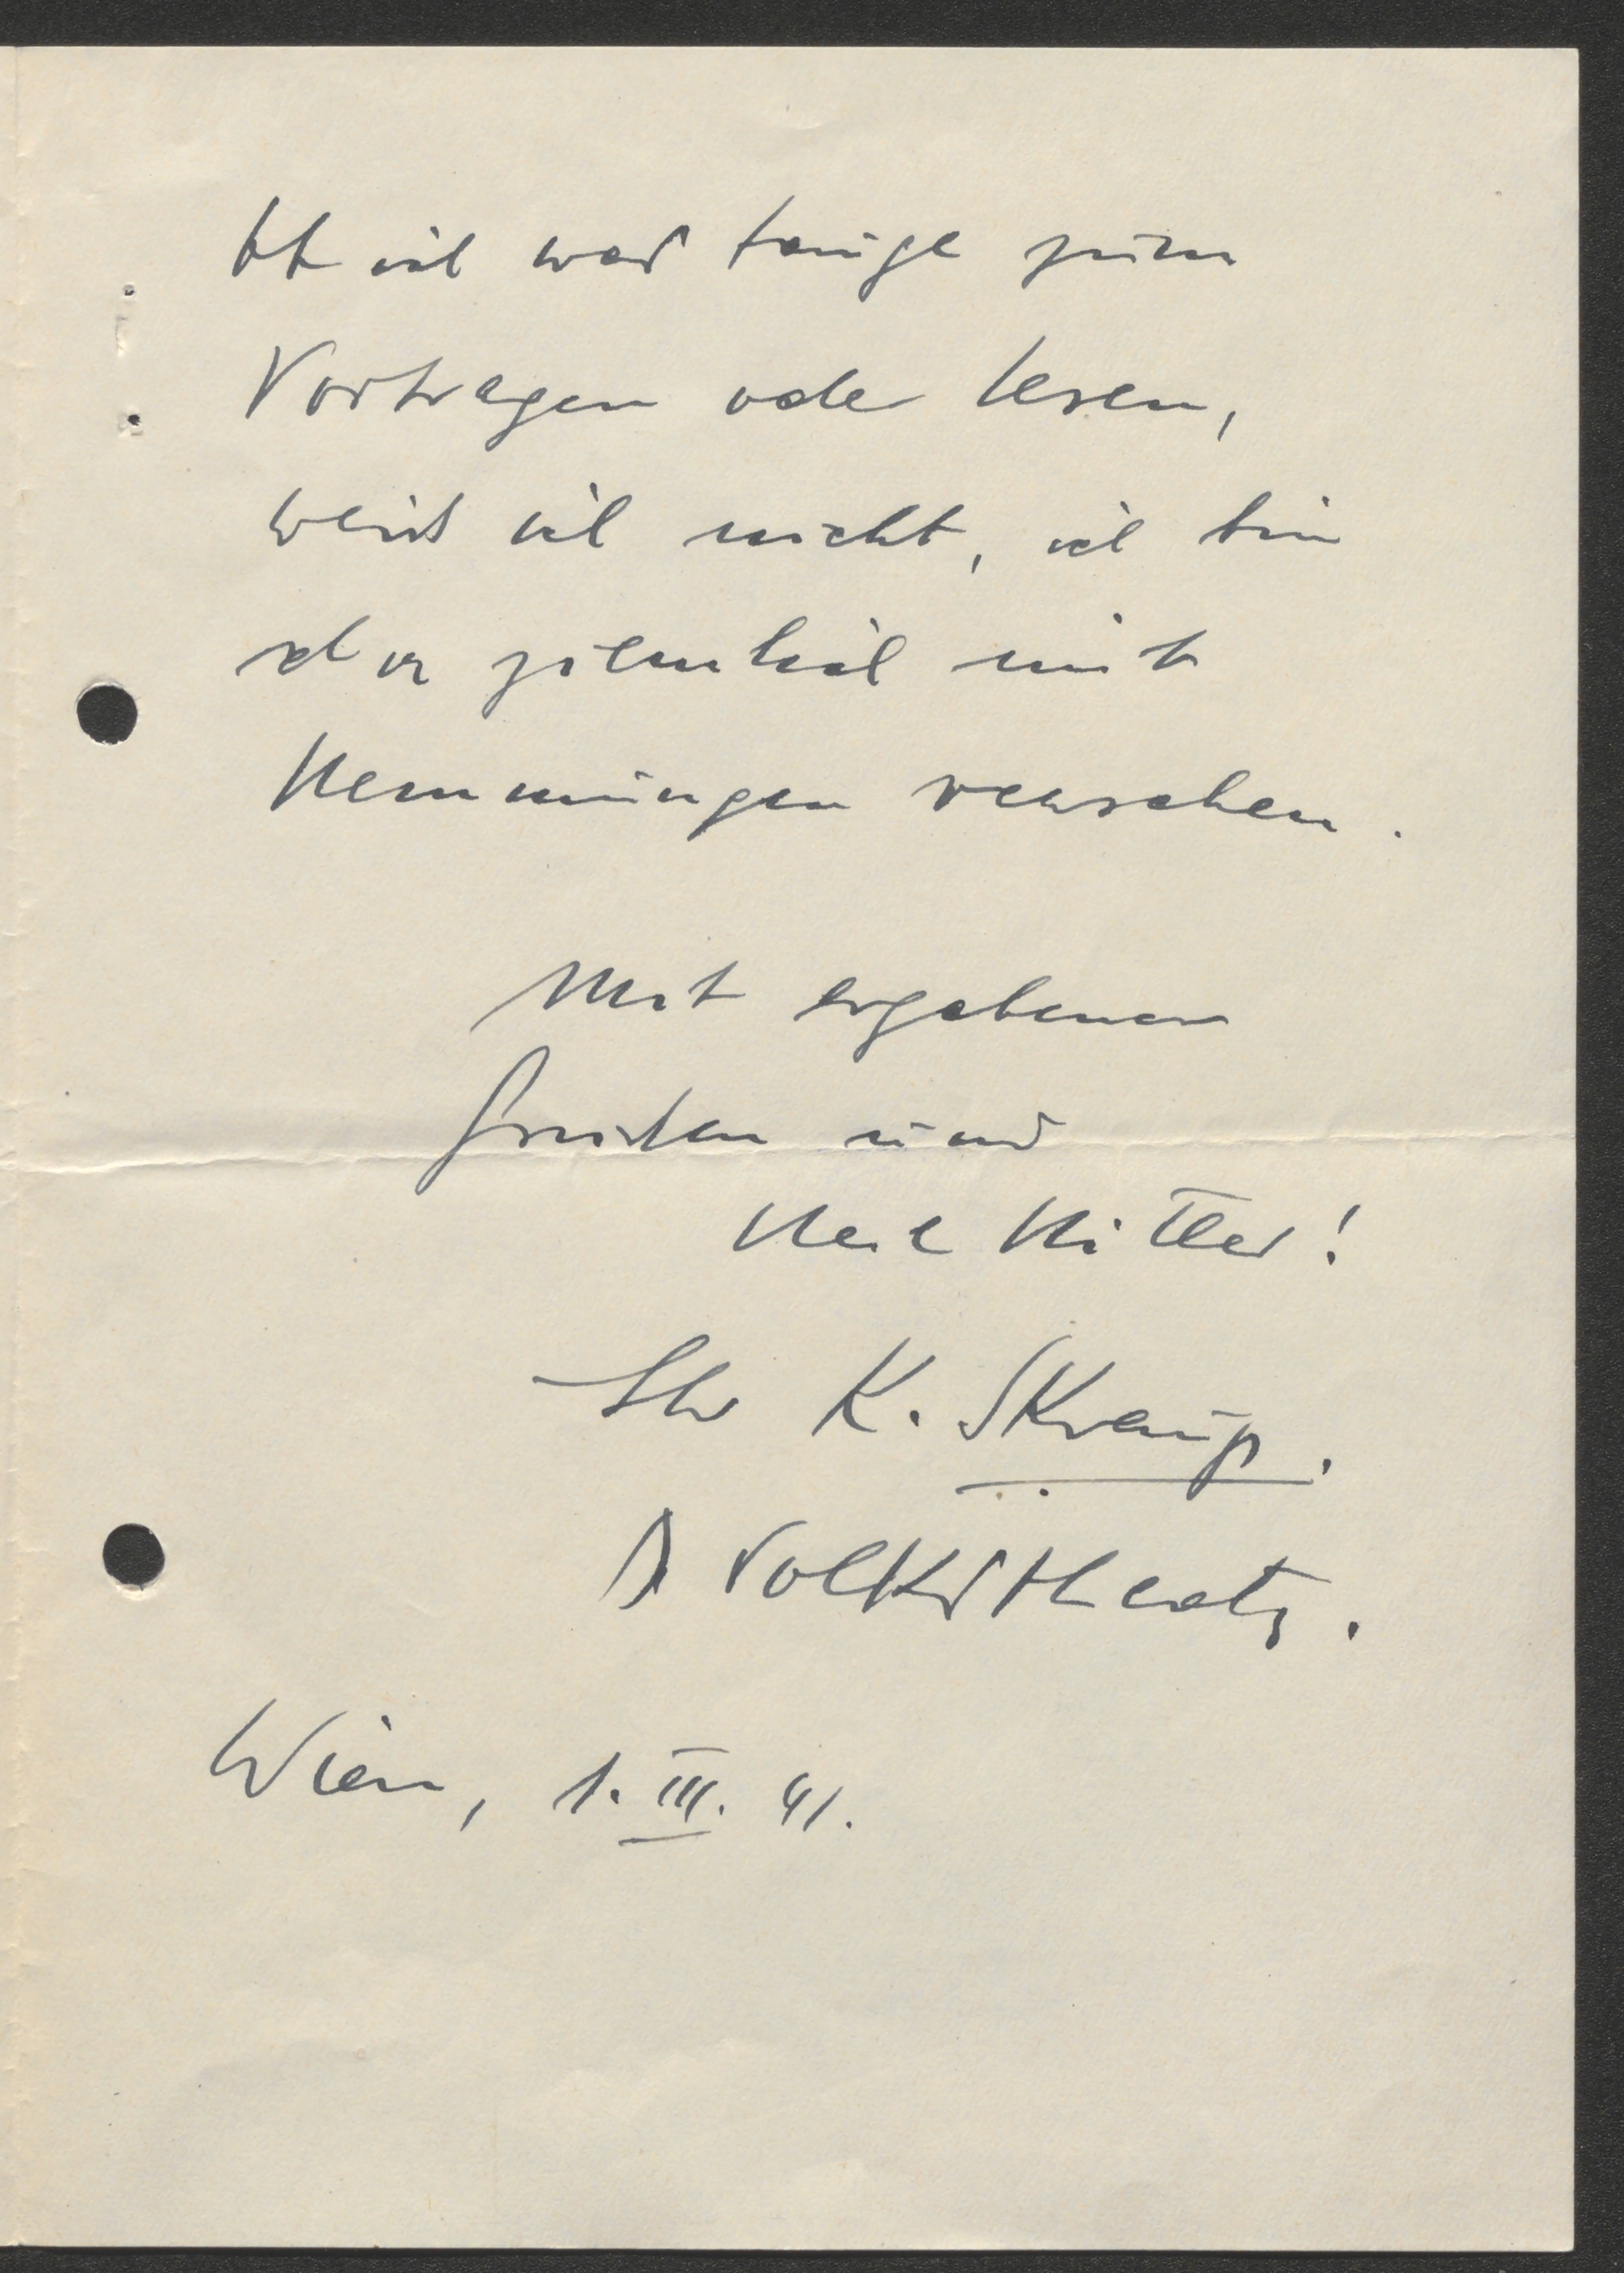 Ob ich was tauge zum
Vortragen oder lesen,
weiss ich nicht, ich bin
da ziemlich mit
Hemmungen versehen.
Mit ergebenen
Grüssen und
Heil Hitler!
Ihr K. Skraup.
D Volkstheater.
Wien, 1. III. 41.